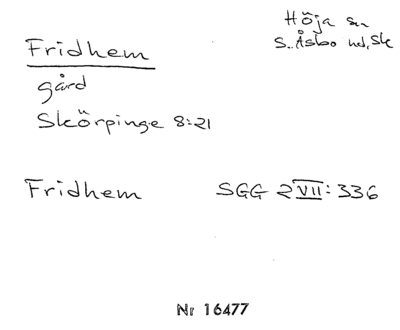 Höja sn
S. Åsbo hd, Sk
Fridhem
gård
Skörpinge 8:21
Fridhem SGG 2 VII: 336
Nr 16477